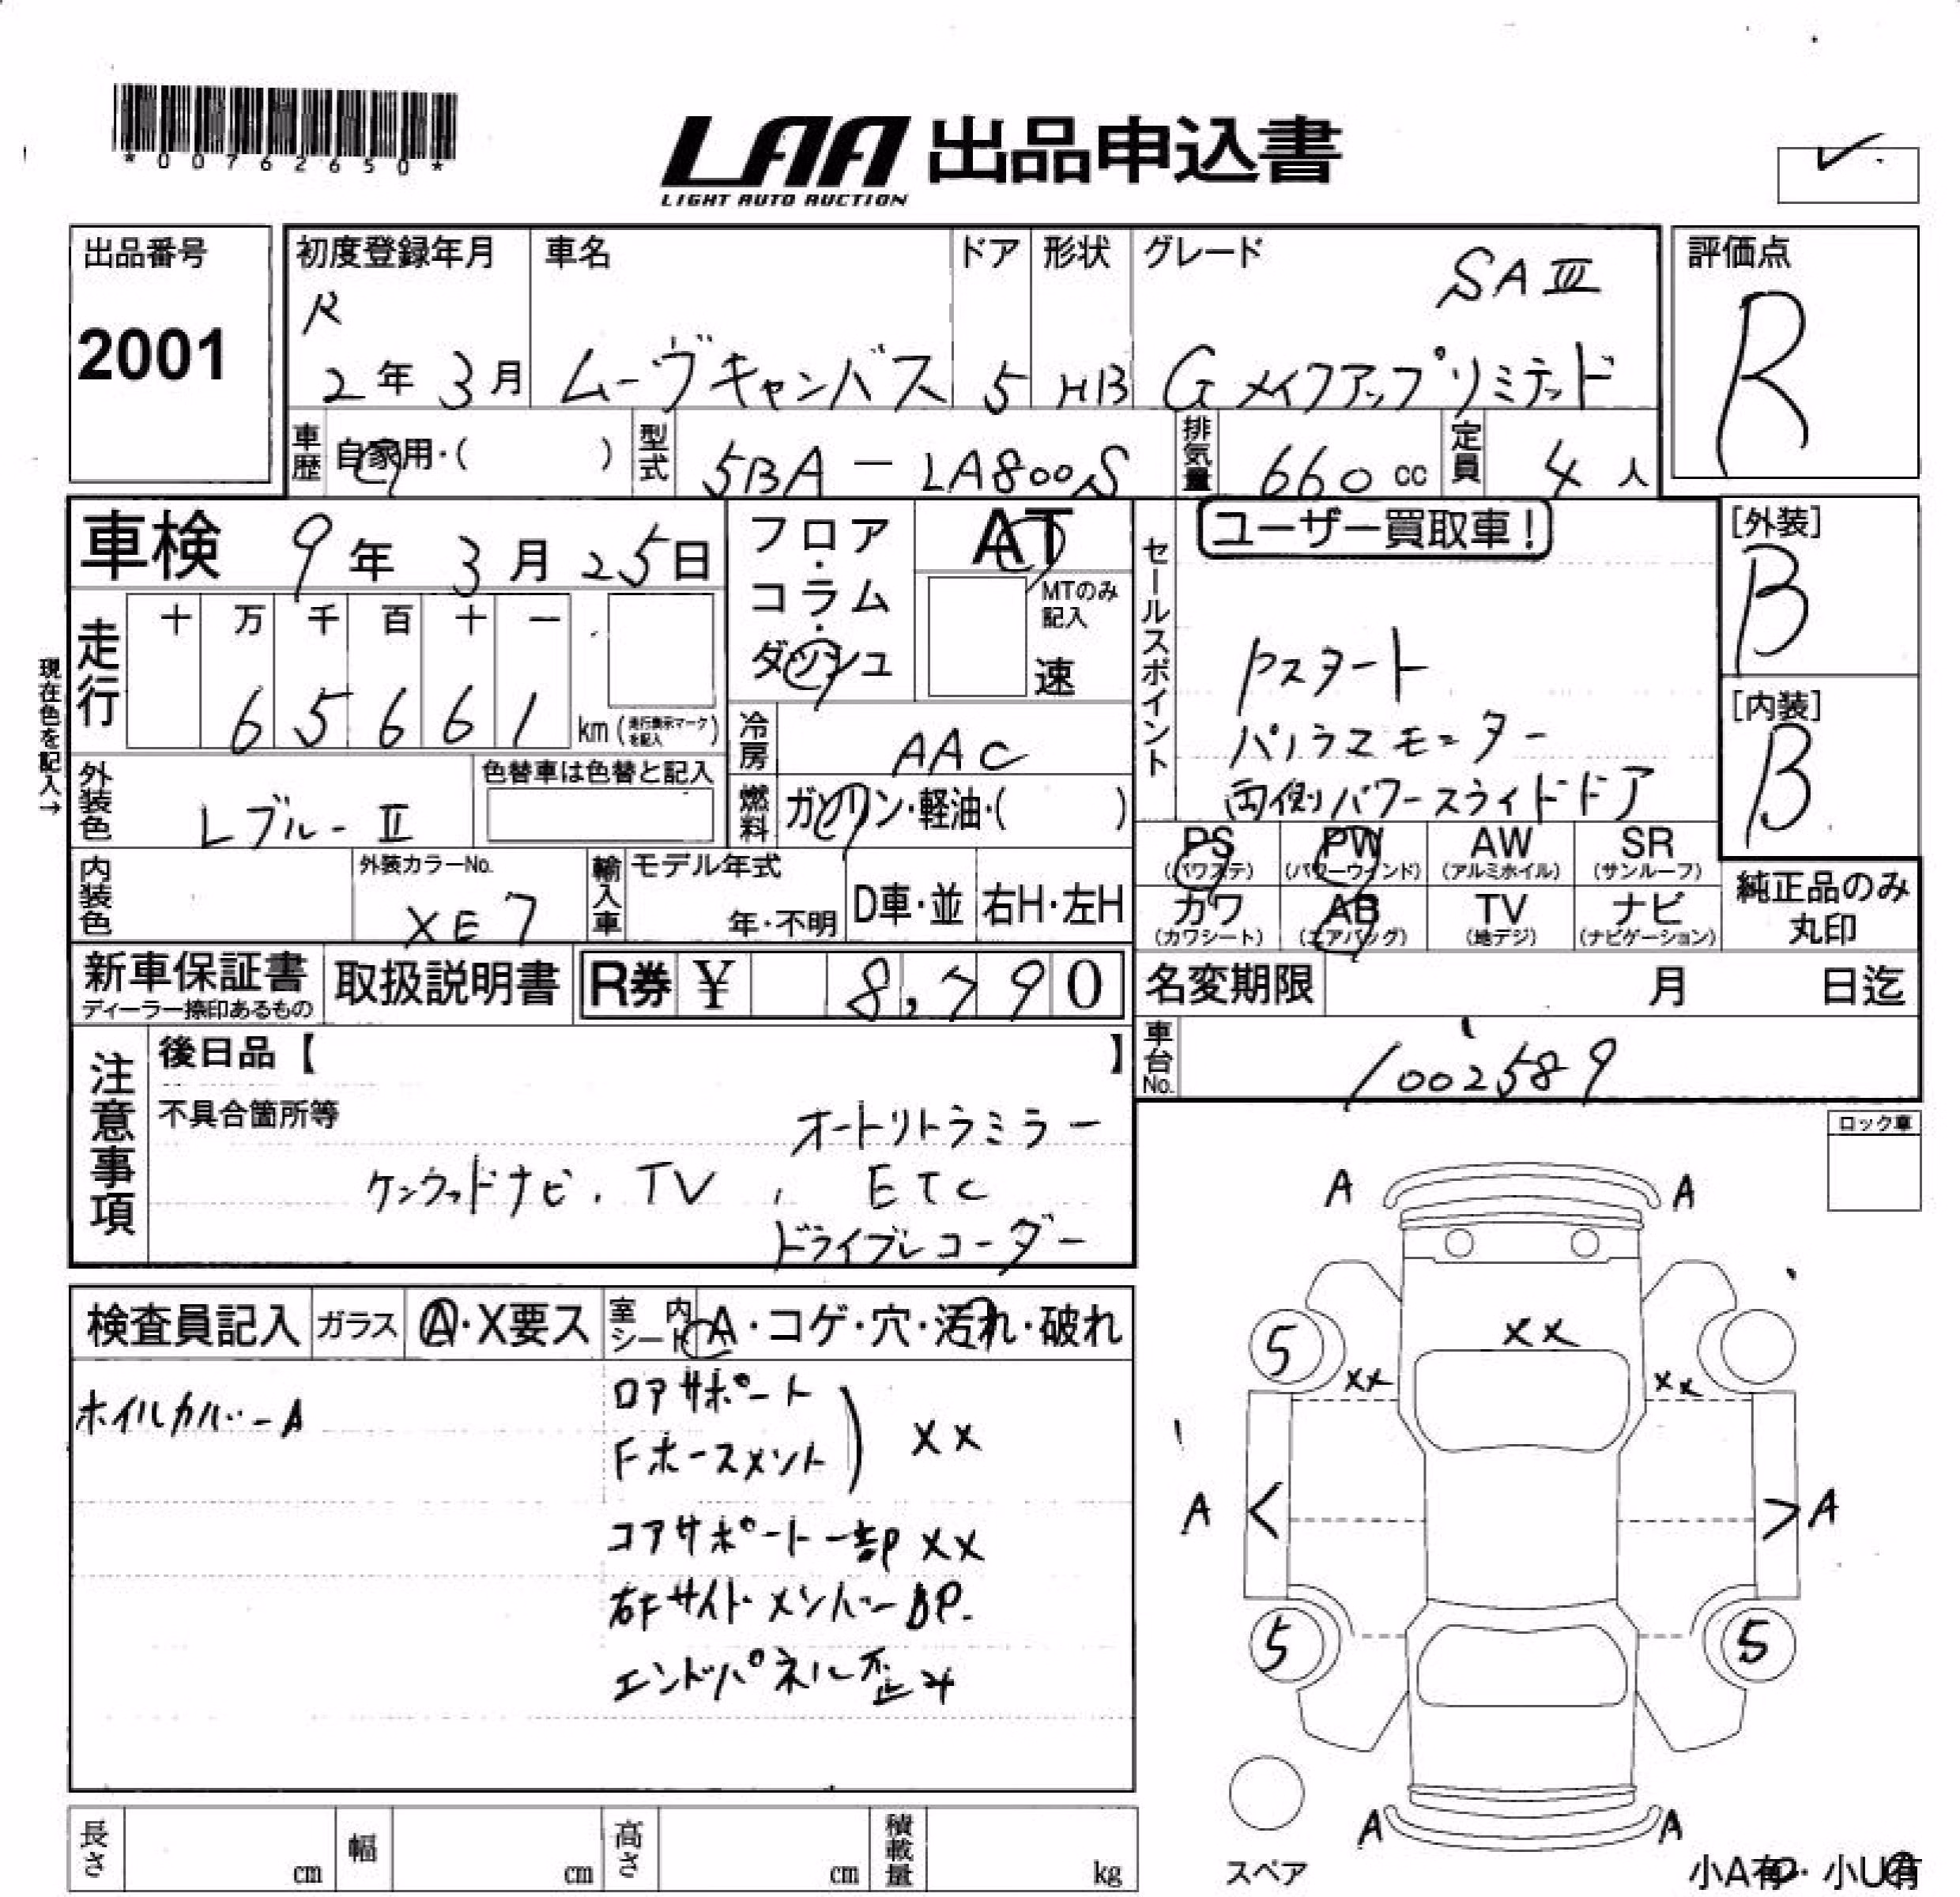 *00762650*
LAA 出品申込書
LIGHT AUTO AUCTION
出品番号
2001
初度登録年月
R
2年 3月
車名
ムーヴキャンバス
ドア
5
形状
HB
グレード
SAⅢ
G メイクアップリミテッド
評価点
R
車歴
自家用・( )
型式
5BA - LA800S
排気量
660 cc
定員
4 人
車検 9年 3月 25日
フロア・コラム・ダッシュ
AT
MTのみ記入
速
セールスポイント
ユーザー買取車!
Pスタート
パノラマモニター
両側パワースライドドア
[外装]
B
[内装]
B
現在色を記入→
走行
十 万 千 百 十 一
6 5 6 6 1
km (走行表示マークを記入)
冷房
AAC
外装色
Lブルー Ⅱ
色替車は色替と記入
燃料
ガソリン・軽油・( )
内装色
外装カラーNo.
XE7
輸入車
モデル年式
年・不明
D車・並
右H・左H
PS
(パワステ)
PW
(パワーウインド)
AW
(アルミホイル)
SR
(サンルーフ)
カワ
(カワシート)
AB
(エアバッグ)
TV
(地デジ)
ナビ
(ナビゲーション)
純正品のみ
丸印
新車保証書
ディーラー捺印あるもの
取扱説明書
R券 ¥ 8,790
名変期限 月 日迄
車台No.
1002589
注意事項
後日品【 】
不具合箇所等
オートリトラミラー
ケンウッドナビ、TV、ETC
ドライブレコーダー
ロック車
検査員記入
ガラス
A・X要ス
室内シート
A・コゲ・穴・汚れ・破れ
ホイルカバーA
ロアサポート
Fホースメント
) XX
コアサポート一部XX
右Fサイドメンバー BP.
エンドパネル歪み
A A
XX
5
XX XX
A < > A
5 5
A A
スペア
小A有・小U有
長さ cm
幅 cm
高さ cm
積載量 kg